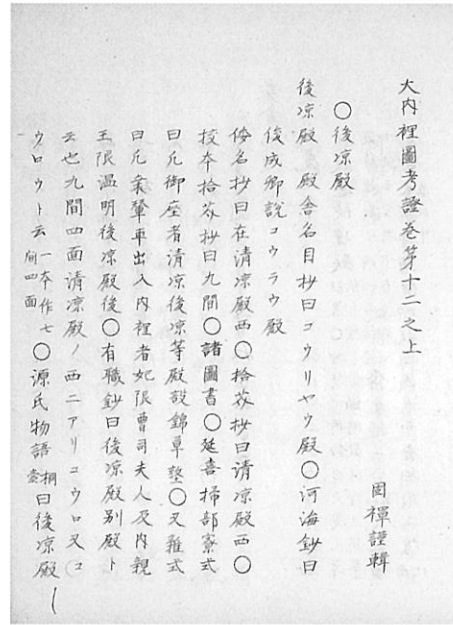 大内裡圖考證卷第十二之上
固禪謹輯
〇後凉殿
後凉殿 殿舍名目抄曰コウリヤウ殿〇河海鈔曰
俊成卿說コウラウ殿
倭名抄曰在清凉殿西〇拾芥抄曰清凉殿西〇
按本拾芥抄曰九間〇諸圖書〇延喜掃部寮式
曰凡御座者清凉後凉等殿設錦草墪〇又雜式
曰凡乘輦車出入内裡者妃限曹司夫人及内親
王限温明後凉殿後〇有職鈔曰後凉殿別殿ト
云也九間四面清凉殿ノ西ニアリコウロ又コ
ウロウト云 一本作七間四面 〇源氏物語 桐壺 曰後凉殿